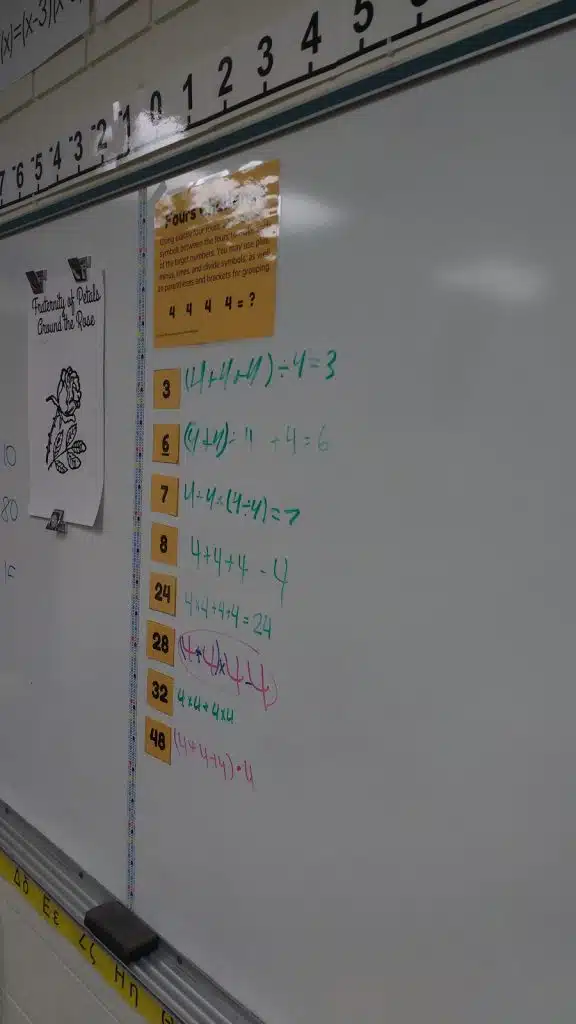 (x)=(x-3)(x
7 -6 -5 -4 -3 -2 -1 0 1 2 3 4 5
Fours
Using exactly four fours
symbols between the fours to
of the target numbers. You may use plus,
minus, times, and divide symbols, as well
as parentheses and brackets for grouping.
4 4 4 4 = ?
Fraternity of Petals
Around the Rose
10
80
15
3 (4+4+4)÷4=3
6 (4+4)÷4 +4=6
7 4+4-(4÷4)=7
8 4+4+4-4
24 4×4+4+4=24
28 (4+4)×4-4
32 4×4+4×4
48 (4+4+4)•4
Δδ Εε Ζζ Ηη